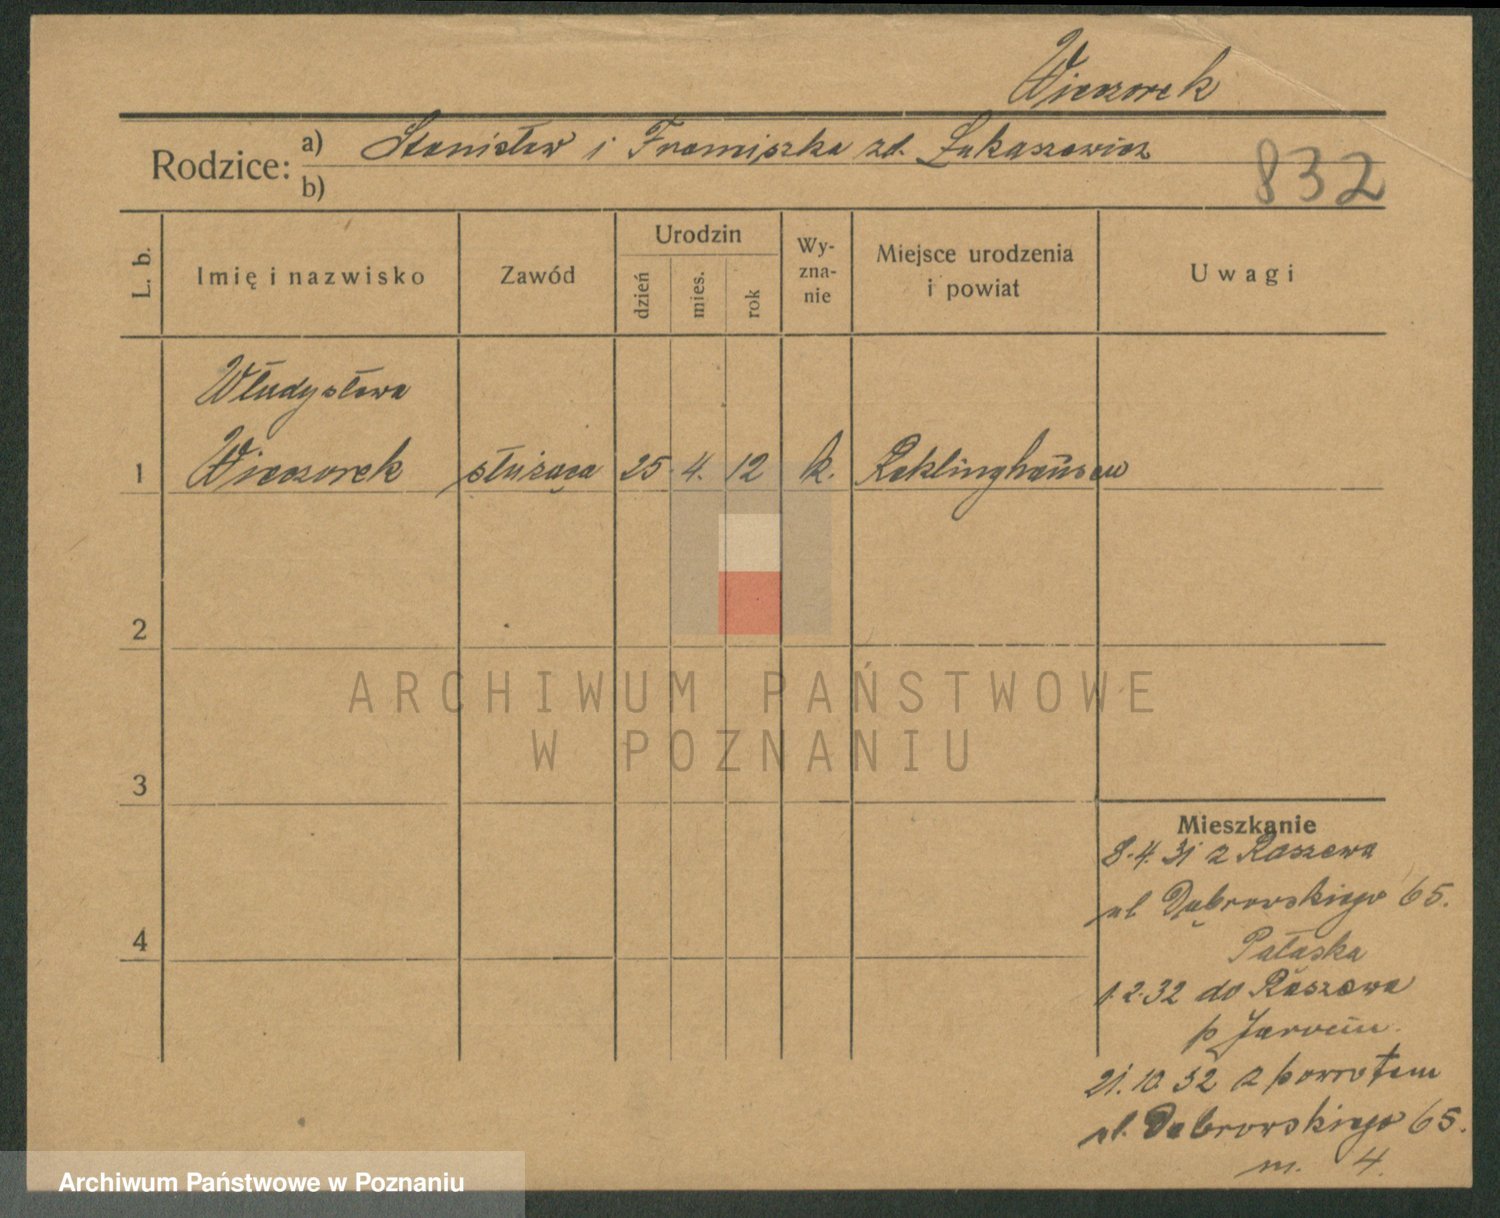 Wieczorek
Rodzice:
a) Stanisław i Franciszka zd. Łukaszewicz
b)
832
L. b.
Imię i nazwisko
Zawód
Urodzin
dzień
mies.
rok
Wy-
zna-
nie
Miejsce urodzenia
i powiat
Uwagi
Władysława
1 Wieczorek służąca 25. 4. 12 k. Reklinghausen
2
3
4
Mieszkanie
8.4.31 z Raszewa
ul Dąbrowskiego 65.
1.2.32 do Raszewa
p Jarocin.
21.10.32 z powrotem
ul. Dąbrowskiego 65.
m. 4.
ARCHIWUM PAŃSTWOWE
W POZNANIU
Archiwum Państwowe w Poznaniu